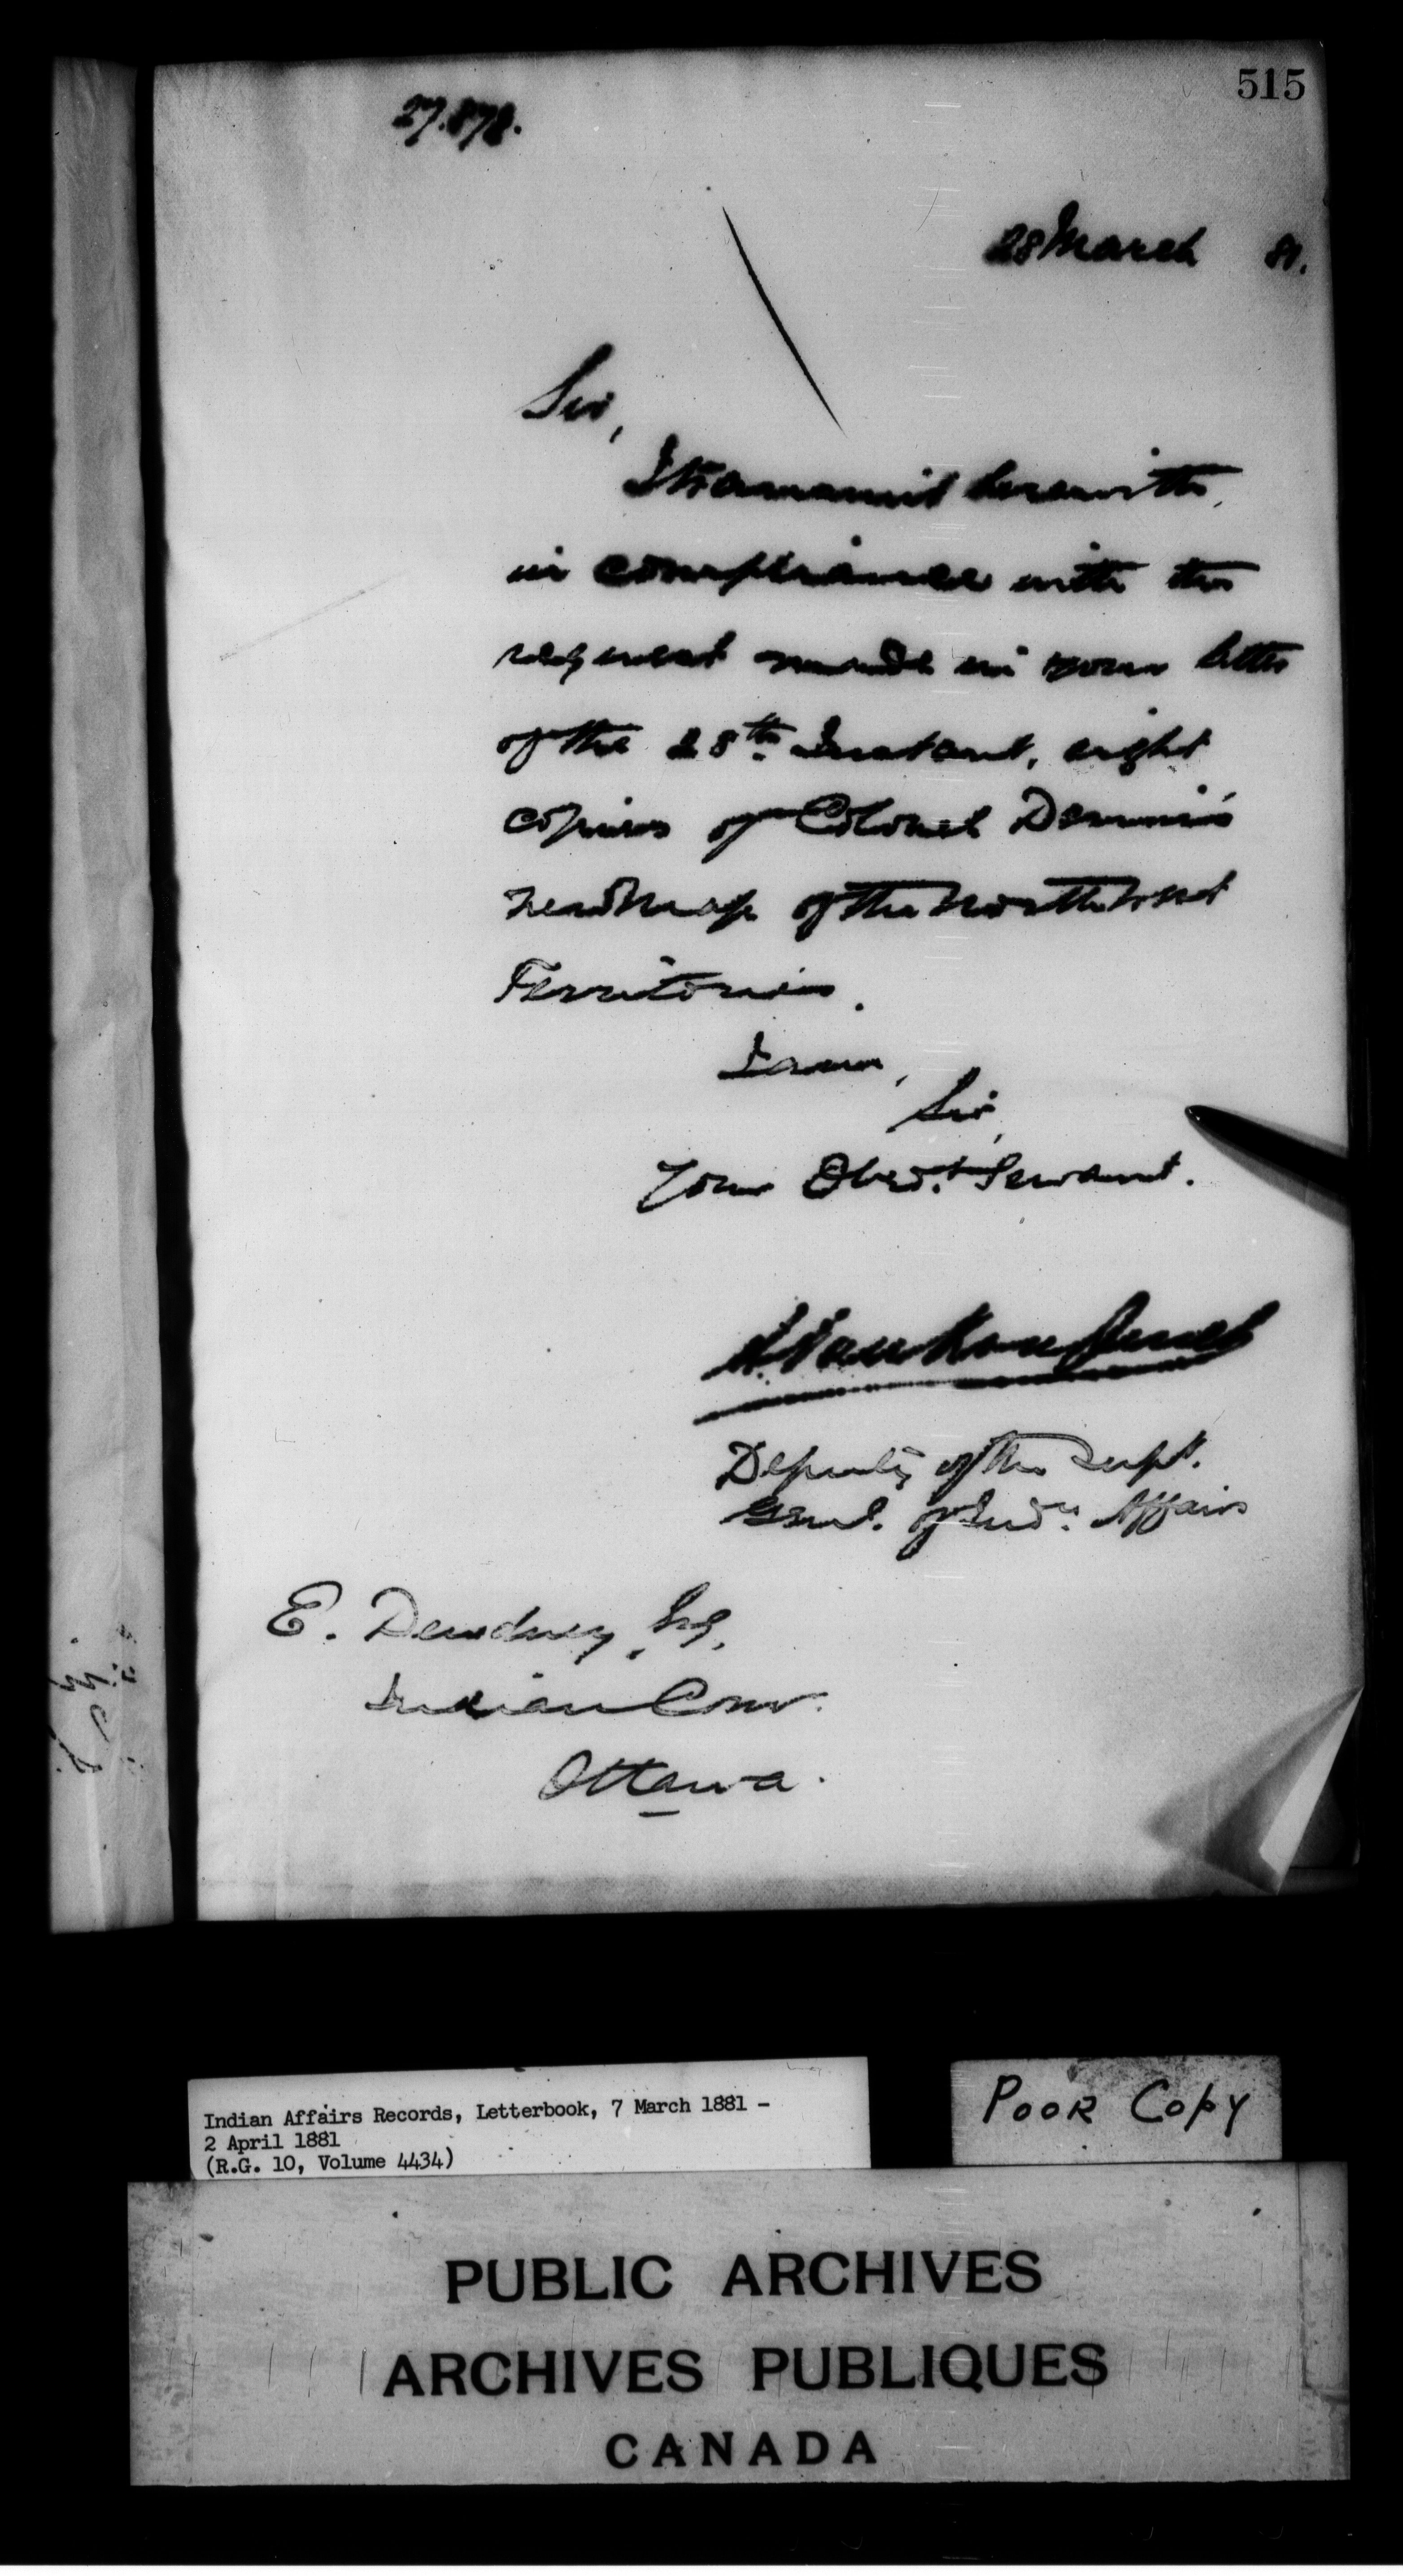 515
27.878.
28 March 81.
Sir,
I transmit herewith,
in compliance with the
request made in your letter
of the 28th Instant, eight
copies of Colonel Dennis's
new Map of the North West
Territories.
I am,
Sir,
Your Obedt. Servant.
L. VanKoughnet
Deputy of the Supt.
Genl. of Indn. Affairs
E. Dewdney, Esq.
Indian Comr.
Ottawa.
Indian Affairs Records, Letterbook, 7 March 1881 -
2 April 1881
(R.G. 10, Volume 4434)
POOR COPY
PUBLIC ARCHIVES
ARCHIVES PUBLIQUES
CANADA